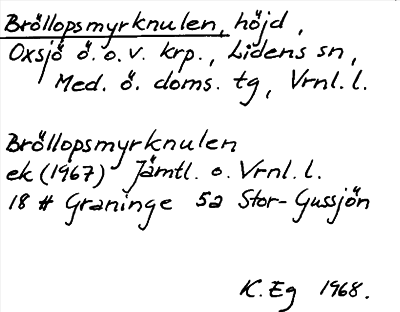 Bröllopsmyrknulen, höjd,
Oxsjö ö.o.v. krp., Lidens sn,
Med. ö. doms. tg, Vrnl.l.
Bröllopsmyrknulen
ek (1967) Jämtl. o. Vrnl.l.
18 # Graninge 5a Stor-Gussjön
K.Eg 1968.